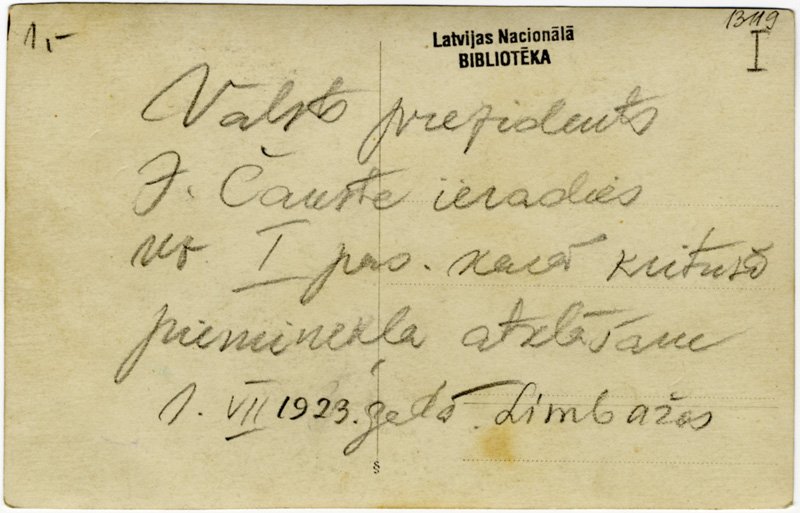 1,-
Latvijas Nacionālā
BIBLIOTĒKA
13119
I
Valsts prezidents
J. Čakste ieradies
uz I pas. karā kritušo
pieminekļa atklāšanu
1. VII 1923. gadā. Limbažos
§